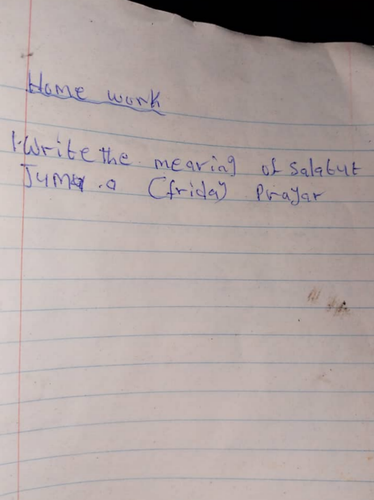 Home work
1. Write the mearing of Salatut
Juma .a (friday) Prayar